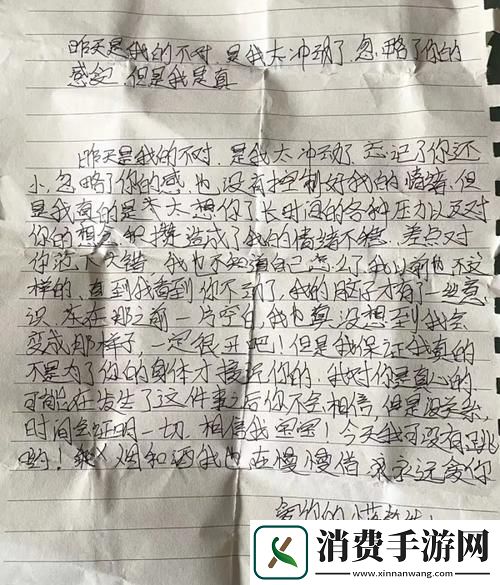 昨天是我的不对,是我太冲动了,忽略了你的
感觉,但是我是真
昨天是我的不对,是我太冲动了,忘记了你还
小,忽略了你的感,也没有控制好我的情绪,但
是我真的是太想你了,长时间的各种压力以及对
你的想念积攒造成了我的情绪不稳,差点对
你犯了大错,我也不知道自己怎么了,我以前也不这
样的,直到我看到你不动了,我的脑子才有了一丝意
识,在那之前一片空白,我也真没想到我会
变成那样子,一定很丑吧!但是我保证我真的
不是为了你的身体才接近你的,我对你是真心的,
可能在发生了这件事之后你不会相信,但是没关系,
时间会证明一切,相信我宝宝!今天我可没有
哟!烟和酒我也在慢慢借,永远爱你
爱你的
消费手游网
www.xinnanwang.com